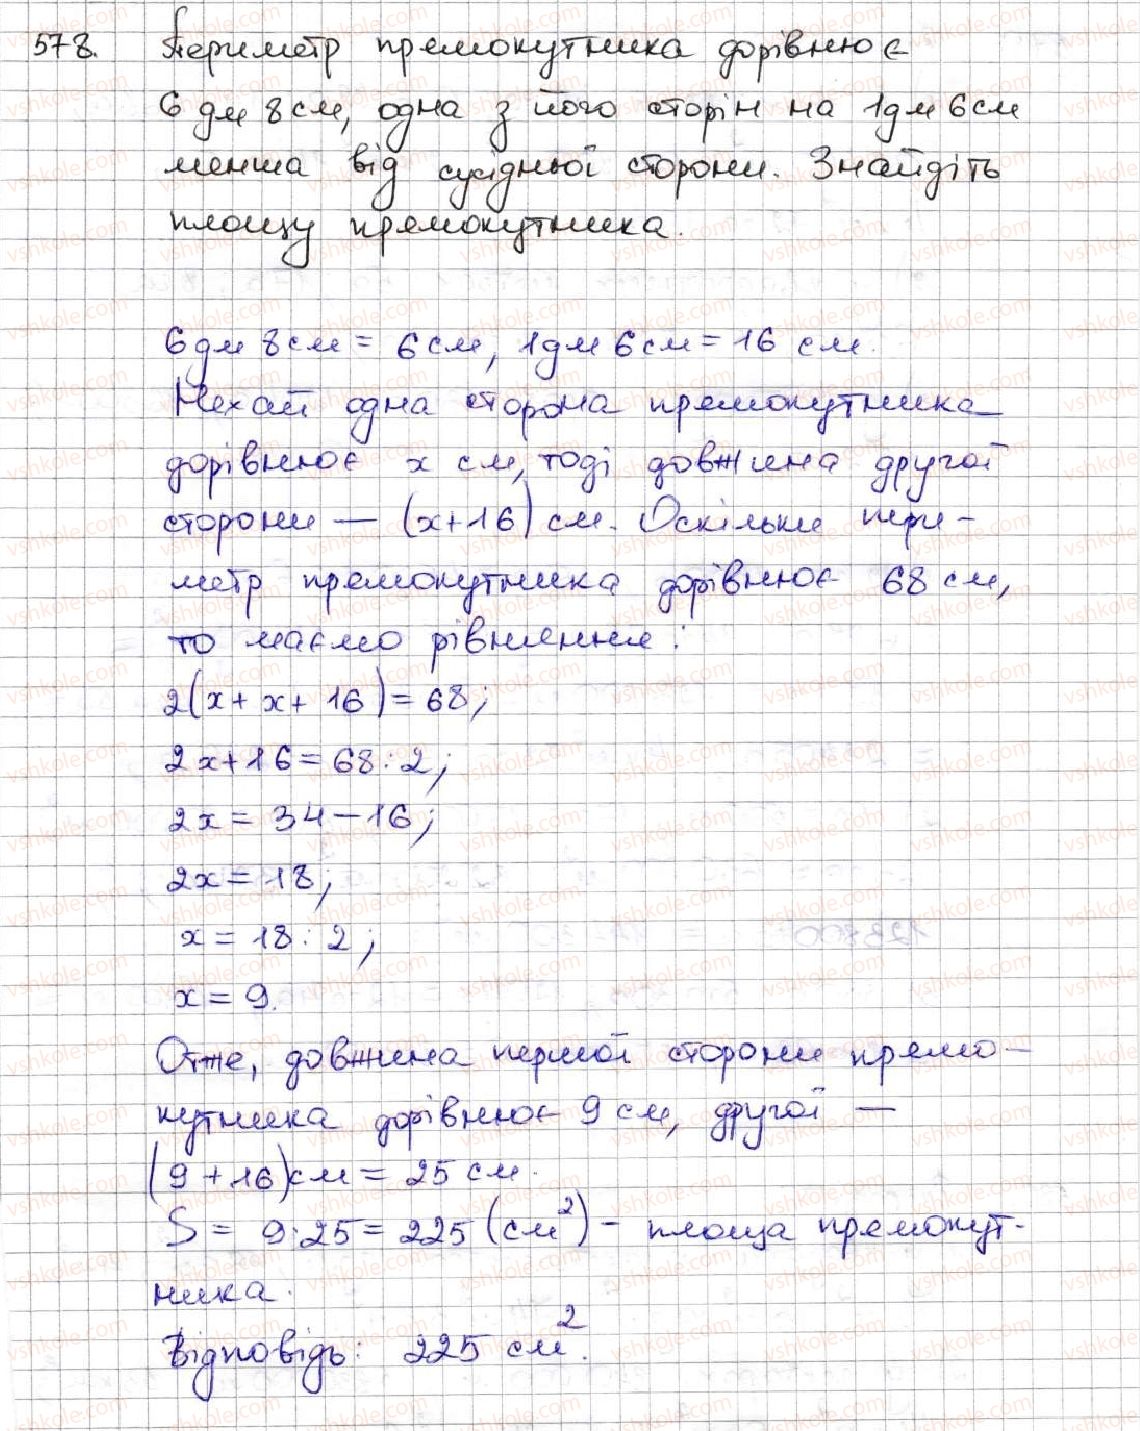 578. Периметр прямокутника дорівнює
6 дм 8 см, одна з його сторін на 1 дм 6 см
менша від сусідньої сторони. Знайдіть
площу прямокутника.
6 дм 8 см = 6 см, 1 дм 6 см = 16 см.
Нехай одна сторона прямокутника
дорівнює x см, тоді довжина другої
сторони — (x+16) см. Оскільки пери-
метр прямокутника дорівнює 68 см,
то маємо рівняння:
2(x + x + 16) = 68;
2x + 16 = 68 : 2;
2x = 34 – 16;
2x = 18;
x = 18 : 2;
x = 9.
Отже, довжина першої сторони прямо-
кутника дорівнює 9 см, другої —
(9 + 16) см = 25 см.
S = 9·25 = 225 (см²) – площа прямокут-
ника.
Відповідь: 225 см².
vshkole.com